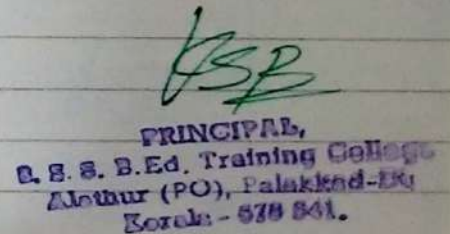 PRINCIPAL,
B. S. S. B.Ed. Training College
Alathur (PO), Palakkad-Dt,
Kerala - 678 541.